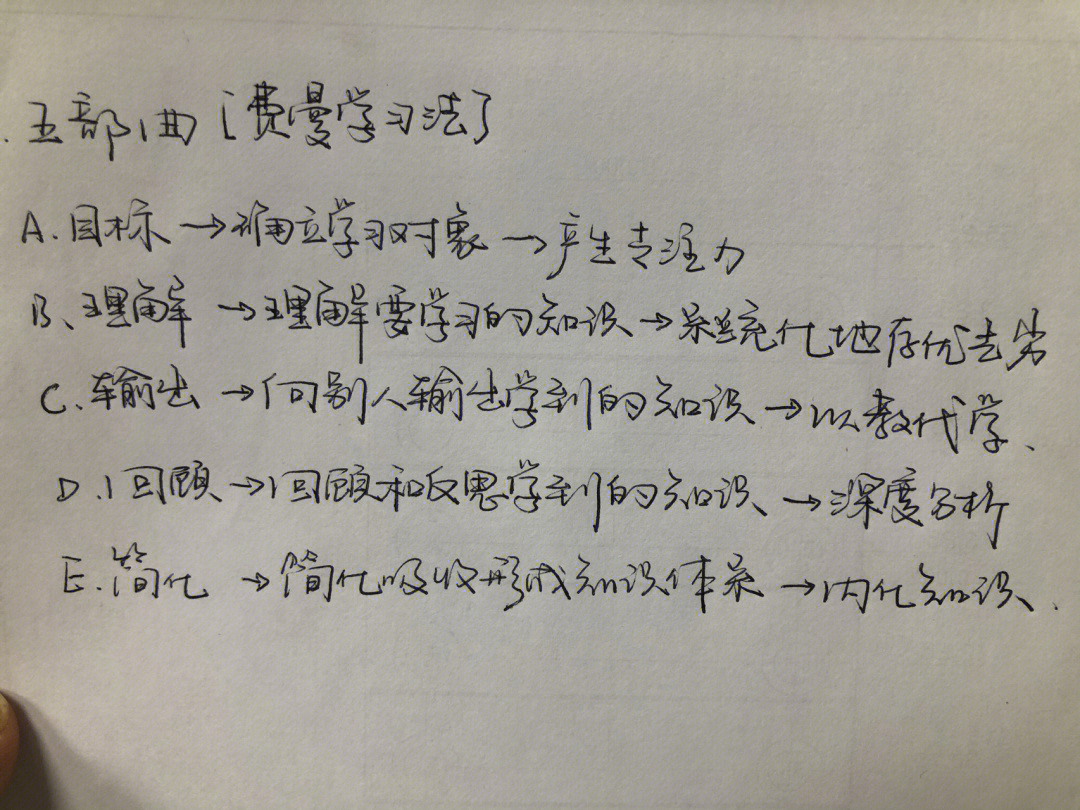 五部曲[费曼学习法]
A.目标→确立学习对象→产生专注力
B、理解→理解要学习的知识→系统化地存优去劣
C.输出→向别人输出学到的知识→以教代学、
D.回顾→回顾和反思学到的知识、→深度分析
E.简化→简化吸收形成知识体系→内化知识、